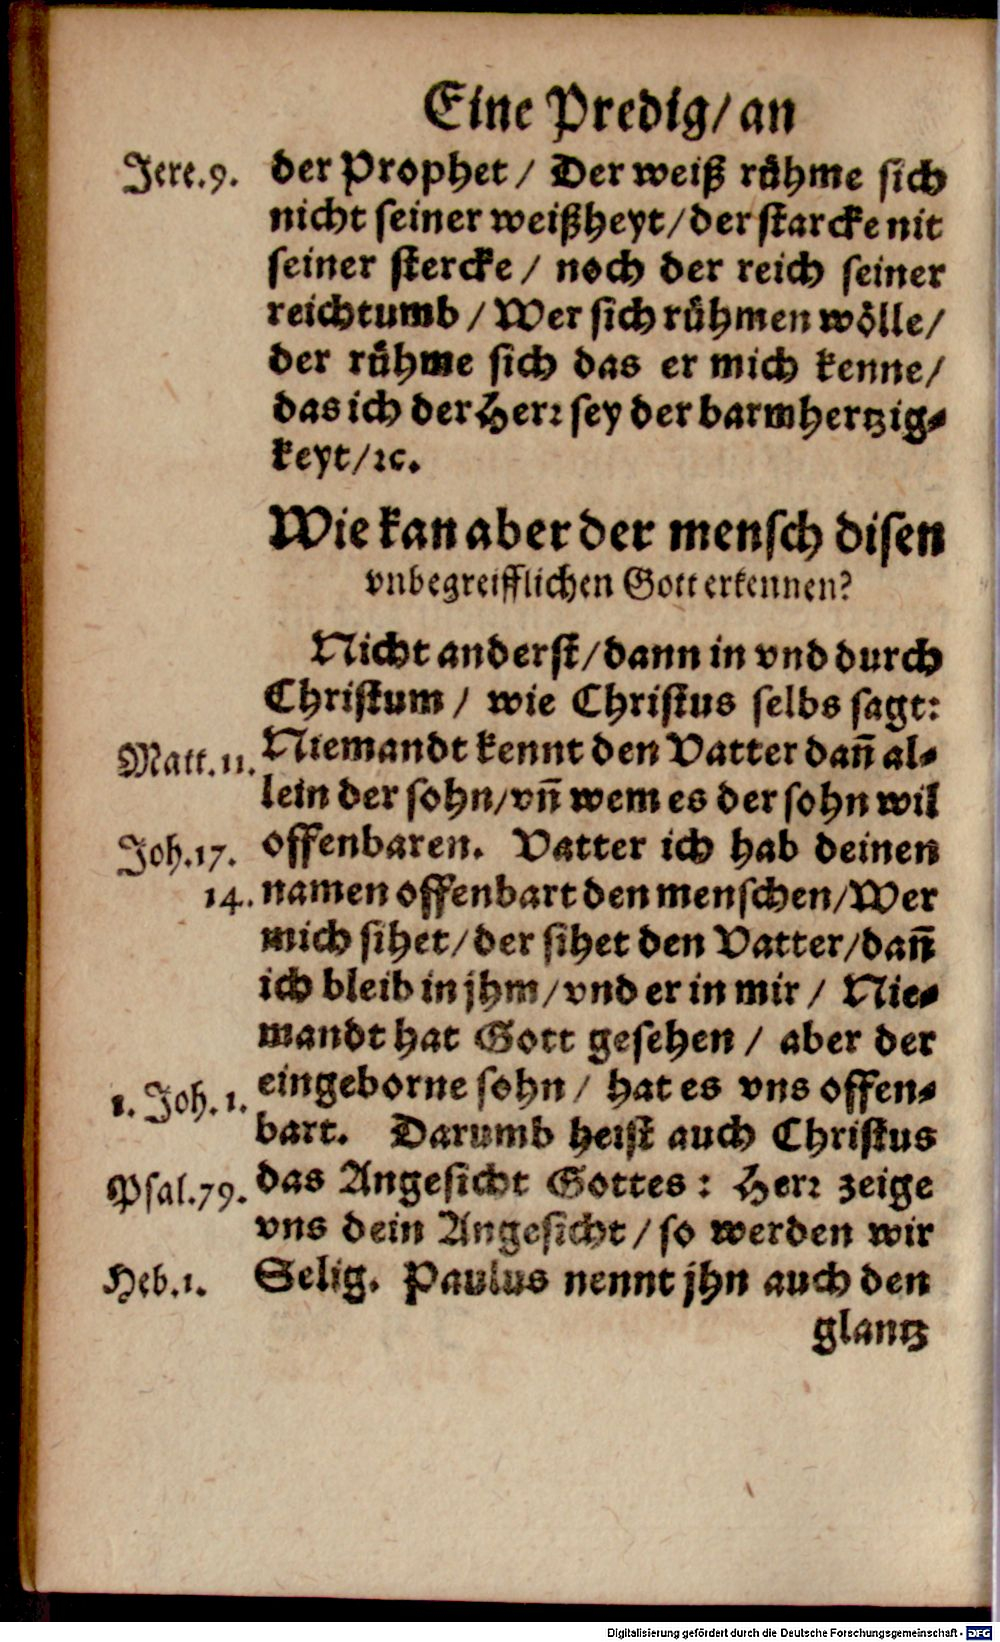 Eine Predig/ an
Jere.9. der Prophet / Der weiß rühme sich
nicht seiner weißheyt/der starcke nit
seiner stercke / noch der reich seiner
reichtumb / Wer sich rühmen wölle/
der rühme sich das er mich kenne/
das ich der Herr sey der barmhertzig-
keyt/ꝛc.
Wie kan aber der mensch disen
vnbegreifflichen Gott erkennen?
Nicht anderst/dann in vnd durch
Christum / wie Christus selbs sagt:
Matt.11. Niemandt kennt den Vatter dañ al-
lein der sohn/vñ wem es der sohn wil
Joh.17. offenbaren. Vatter ich hab deinen
14. namen offenbart den menschen/Wer
mich sihet/der sihet den Vatter/dañ
ich bleib in jhm/vnd er in mir / Nie-
mandt hat Gott gesehen / aber der
1. Joh.1. eingeborne sohn / hat es vns offen-
bart. Darumb heist auch Christus
Psal.79. das Angesicht Gottes: Herr zeige
vns dein Angesicht / so werden wir
Heb.1. Selig. Paulus nennt jhn auch den
glantz
Digitalisierung gefördert durch die Deutsche Forschungsgemeinschaft - DFG